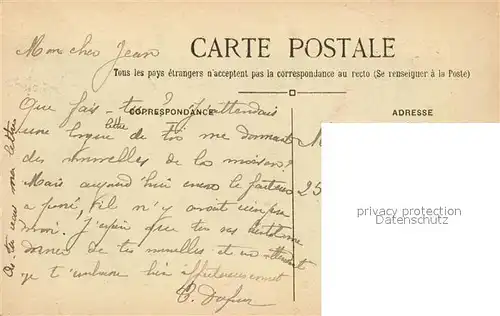 Mon cher Jean
CARTE POSTALE
Tous les pays étrangers n'acceptent pas la correspondance au recto (Se renseigner à la Poste)
CORRESPONDANCE
ADRESSE
Que fais-tu? J'attendais
une longue lettre de toi me donnant
des nouvelles de la maison?
Mais aujourd'hui encore le facteur
a passé, il n'y avait rien pour
moi. J'espère que tu vas
donner de tes nouvelles et en attendant
je t'embrasse bien affectueusement
As-tu reçu ma lettre
M
25
privacy protection
Datenschutz